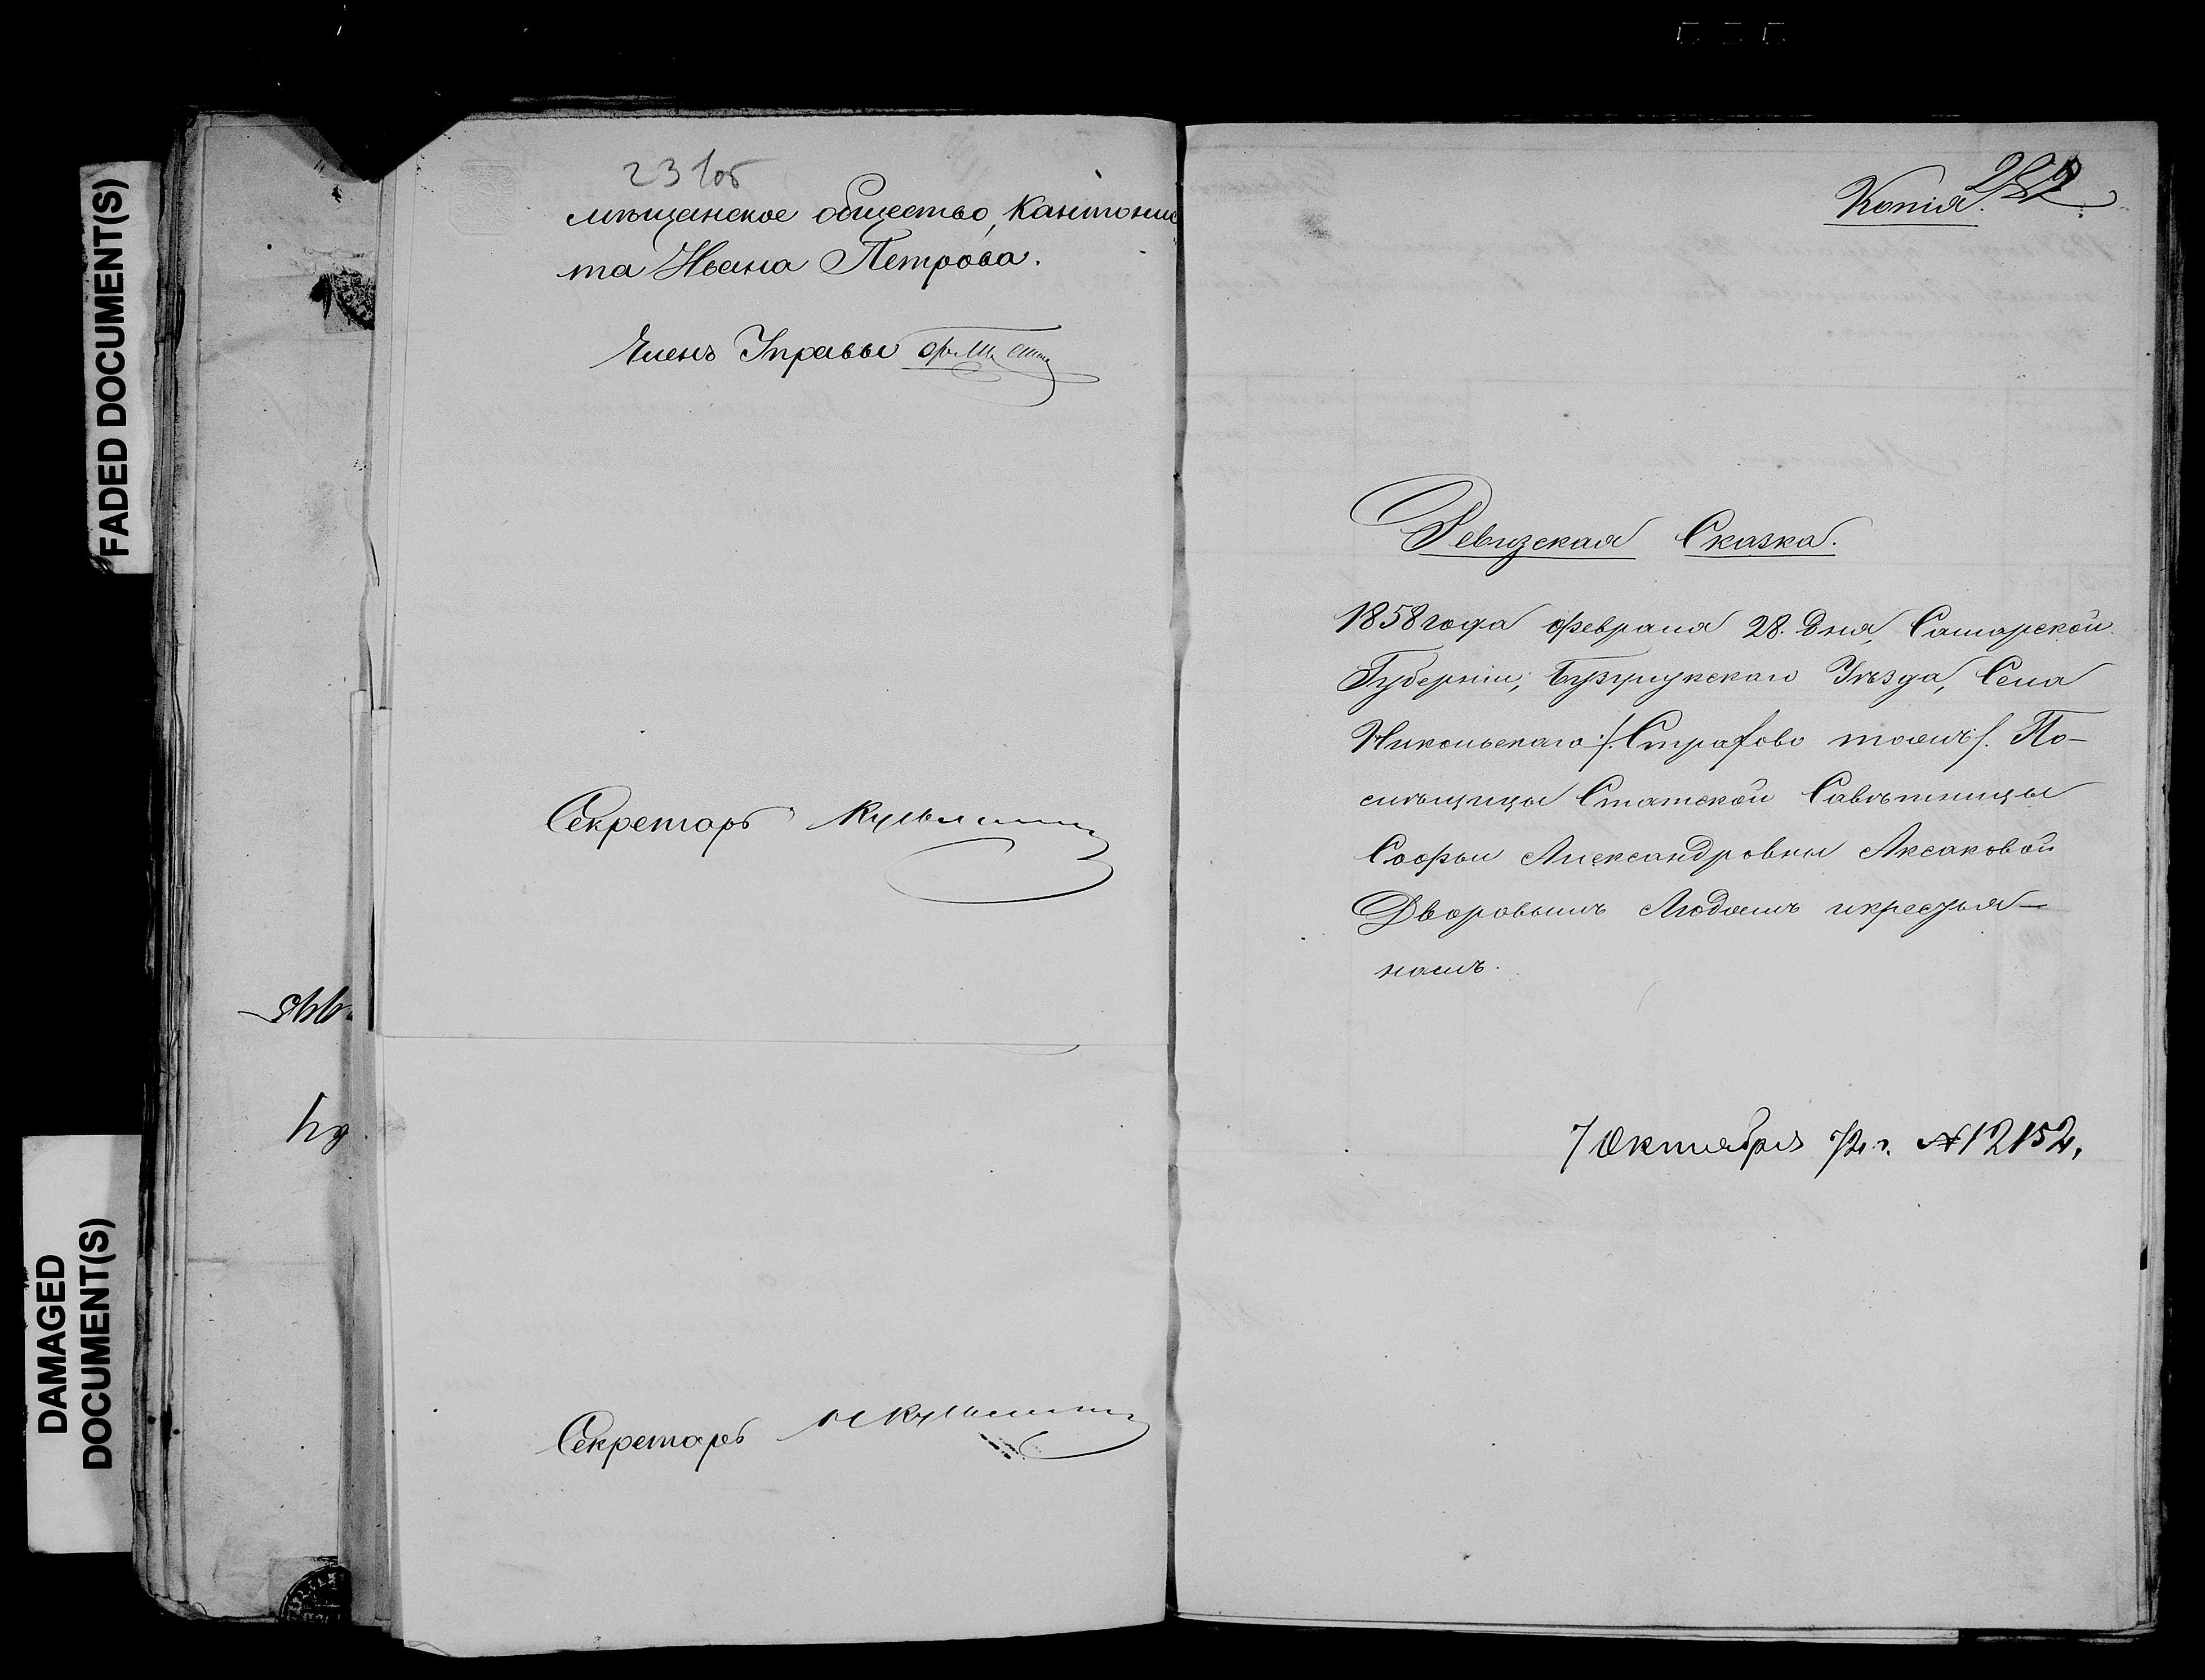 FADED DOCUMENT(S)
DAMAGED
DOCUMENT(S)
231об
мѣщанское общество, Кантони
та Ивана Петрова.
Членъ Управы
Секретарь
Секретарь
Копія.
Ревизская Сказка.
1858 года февраля 28. Дня, Самарской
Губерніи, Бузулукскаго Уѣзда, Села
Никольскаго /: Страхово тожъ /. По-
мѣщицы Статской Савѣтницы
Софьи Александровны Аксаковой
Дворовымъ Людямъ и крестья-
намъ.
7 Октября 72 г. № 12152.